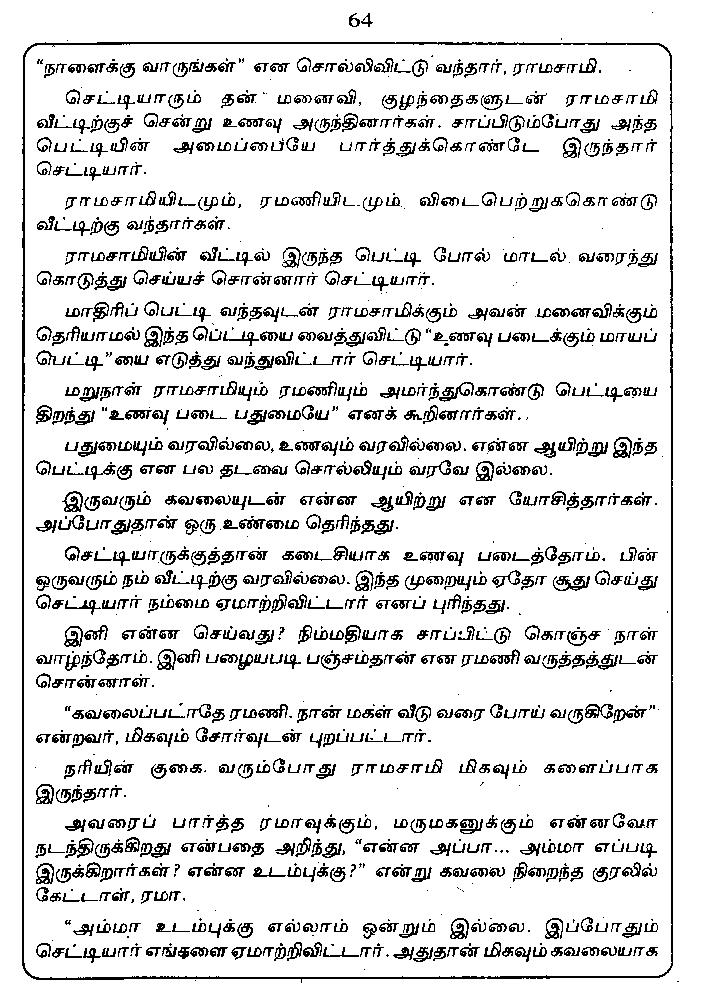 64
“நாளைக்கு வாருங்கள்” என சொல்லிவிட்டு வந்தார், ராமசாமி.
செட்டியாரும் தன் மனைவி, குழந்தைகளுடன் ராமசாமி
வீட்டிற்குச் சென்று உணவு அருந்தினார்கள். சாப்பிடும்போது அந்த
பெட்டியின் அமைப்பையே பார்த்துக்கொண்டே இருந்தார்
செட்டியார்.
ராமசாமியிடமும், ரமணியிடமும் விடைபெற்றுககொண்டு
வீட்டிற்கு வந்தார்கள்.
ராமசாமியின் வீட்டில் இருந்த பெட்டி போல் மாடல் வரைந்து
கொடுத்து செய்யச் சொன்னார் செட்டியார்.
மாதிரிப் பெட்டி வந்தவுடன் ராமசாமிக்கும் அவன் மனைவிக்கும்
தெரியாமல் இந்த பெட்டியை வைத்துவிட்டு “உணவு படைக்கும் மாயப்
பெட்டி”யை எடுத்து வந்துவிட்டார் செட்டியார்.
மறுநாள் ராமசாமியும் ரமணியும் அமர்ந்துகொண்டு பெட்டியை
திறந்து “உணவு படை பதுமையே” எனக் கூறினார்கள்.
பதுமையும் வரவில்லை, உணவும் வரவில்லை. என்ன ஆயிற்று இந்த
பெட்டிக்கு என பல தடவை சொல்லியும் வரவே இல்லை.
இருவரும் கவலையுடன் என்ன ஆயிற்று என யோசித்தார்கள்.
அப்போதுதான் ஒரு உண்மை தெரிந்தது.
செட்டியாருக்குத்தான் கடைசியாக உணவு படைத்தோம். பின்
ஒருவரும் நம் வீட்டிற்கு வரவில்லை. இந்த முறையும் ஏதோ சூது செய்து
செட்டியார் நம்மை ஏமாற்றிவிட்டார் எனப் புரிந்தது.
இனி என்ன செய்வது? நிம்மதியாக சாப்பிட்டு கொஞ்ச நாள்
வாழ்ந்தோம். இனி பழையபடி பஞ்சம்தான் என ரமணி வருத்தத்துடன்
சொன்னாள்.
“கவலைப்படாதே ரமணி. நான் மகள் வீடு வரை போய் வருகிறேன்”
என்றவர், மிகவும் சோர்வுடன் புறப்பட்டார்.
நரியின் குகை வரும்போது ராமசாமி மிகவும் களைப்பாக
இருந்தார்.
அவரைப் பார்த்த ரமாவுக்கும், மருமகனுக்கும் என்னவோ
நடந்திருக்கிறது என்பதை அறிந்து, “என்ன அப்பா... அம்மா எப்படி
இருக்கிறார்கள்? என்ன உடம்புக்கு?” என்று கவலை நிறைந்த குரலில்
கேட்டாள், ரமா.
“அம்மா உடம்புக்கு எல்லாம் ஒன்றும் இல்லை. இப்போதும்
செட்டியார் எங்களை ஏமாற்றிவிட்டார். அதுதான் மிகவும் கவலையாக